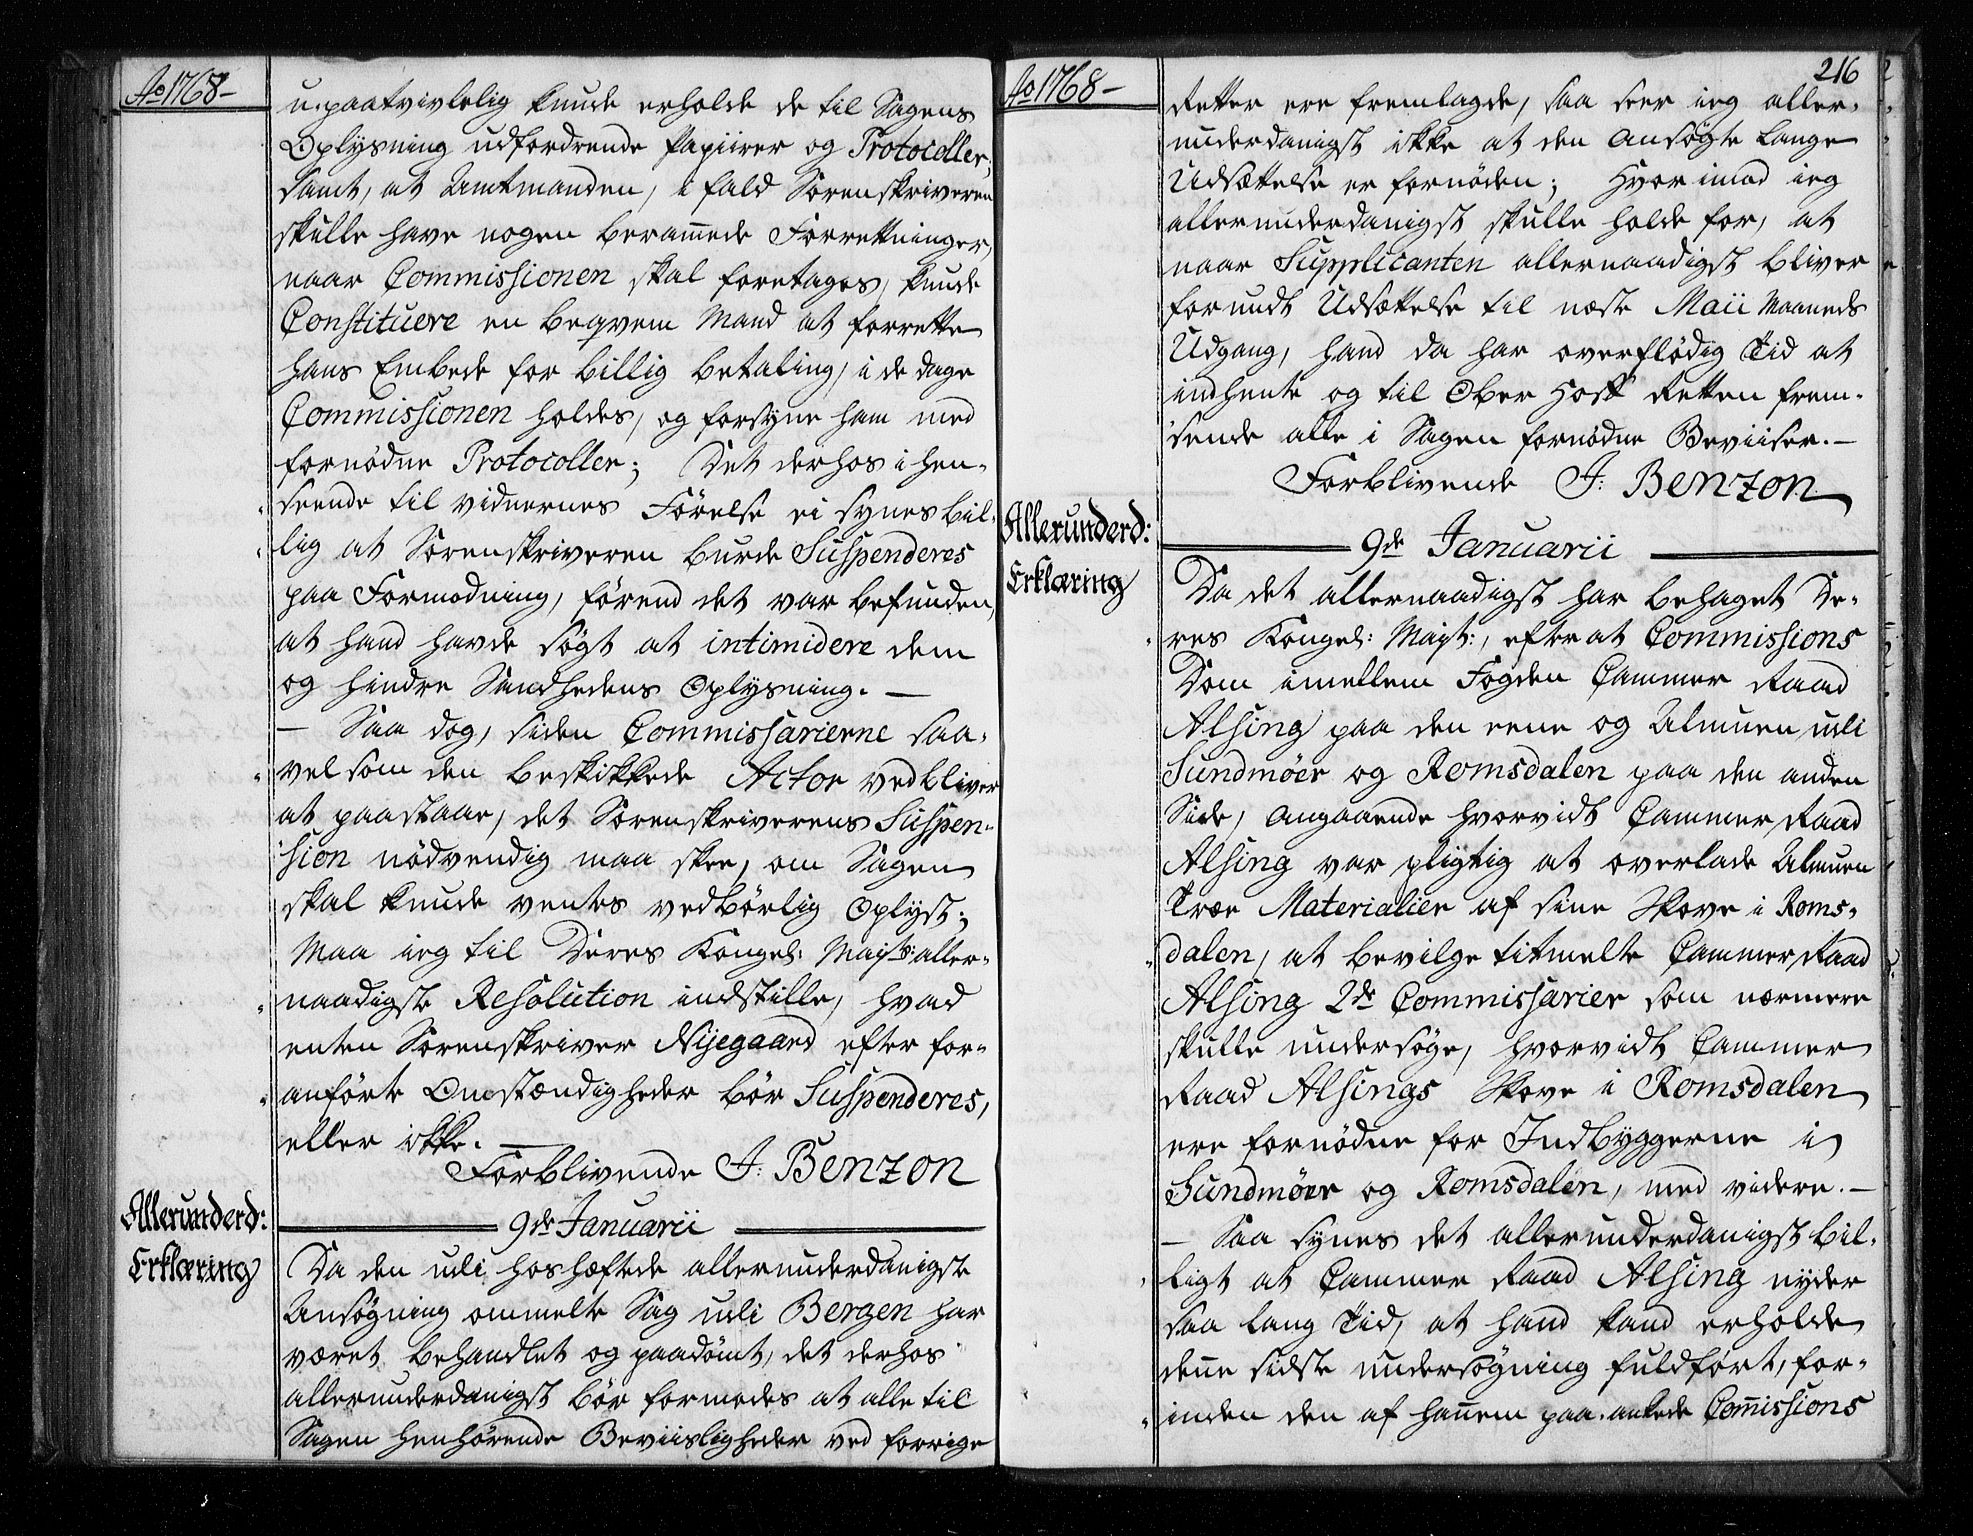 Ao 1768-
u-paatvivlelig kunde erholde de til Sagens
Oplysning udfordrende Papiirer og Protocoller,
samt, at Amtmanden, i fald Sorenskriveren
skulle have nogen berammede Forrettninger,
naar Commissionen skal foretages, kunde
Constituere en beqvem Mand at forrette
hans Embede for billig betaling, i de dage
Commissionen holdes, og forsyne ham med
fornødne Protocoller; Det derhos i hen-
seende til vidnernes Förelse ei synes bil-
lig at Sorenskriveren burde Suspenderes
paa Formodning, förend det var befunden,
at hand havde søgt at intimidere dem
og hindre Sandhedens Oplysning. —
— Saa dog, siden Commissarierne saa-
vel som den beskikkede Actor vedbliver
at paastaae, det Sorenskriverens Suspen-
sion nödvendig maa skee, om Sagen
skal kunde ventes vedbörlig Oplyst;
Maa ieg til Deres Kongel: Mayts: aller-
naadigste Resolution indstille, hvad
enten Sorenskriver Nijegaard efter for-
anförte Omstændigheder bör Suspenderes,
eller ikke. —
Forblivende J: Benzon
Allerunderd:
Erklæring
9de Januarii
Da den udi hoshæftede allerunderdanigste
Ansøgning ommelte Sag udi Bergen har
været behandlet og paadömt, det derhos
allerunderdanigst bör formodes at alle til
Sagen henhörende Beviisligheder ved forrige
Ao 1768-
216
Retter ere fremlagde, saa seer ieg aller-
underdanigst ikke at den ansøgte lange
Udsættelse er fornöden; Hvorimod ieg
allerunderdanigst skulle holde for, at
naar Supplicanten allernaadigst bliver
forundt Udsættelse til næste Maii Maaneds
Udgang, hand da har overflödig Tid at
indhente og til Ober Hoff Retten frem-
sende alle i Sagen fornødne Beviiser. —
Forblivende J: Benzon
Allerunderd:
Erklæring
9de Januarii
Da det allernaadigst har behaget De-
res Kongel: Mayt:, efter at Commissions
Dom imellem Fogden Cammer Raad
Alsing paa den eene og Almuen udi
Sundmöer og Romsdalen paa den anden
Side, angaaende hvorvidt Cammer Raad
Alsing var pligtig at overlade Almuen
Træe Materialier af sine Skove i Roms-
dalen, at bevilge titmelte Cammer Raad
Alsing 2de Commissarier som nærmere
skulle undersöge, hvorvidt Cammer
Raad Alsings Skove i Romsdalen
ere fornødne for Indbyggerne i
Sundmöer og Romsdalen, med videre. —
— Saa synes det allerunderdanigst bil-
ligt at Cammer Raad Alsing nyder
saa lang Tid, at hand kand erholde
denne sidste undersøgning fuldfört, for-
inden den af hannem paa-ankede Commissions